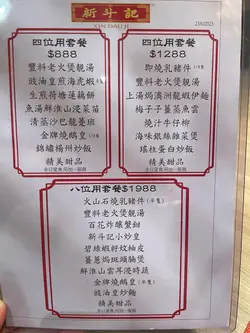 新斗記
XIN DAU JI
四位用套餐
$888
豐料老火煲靚湯
豉油皇煎海虎蝦
生煎荷塘蓮藕餅
魚湯鮮淮山浸菜苗
清蒸沙巴龍躉班
金牌燒鵝皇
錦繡楊州炒飯
精美甜品
四位用套餐
$1288
即燒乳豬件
豐料老火煲靚湯
上湯焗澳洲龍蝦伊麵
梅子子薑蒸魚雲
燒汁牛仔柳
海味銀絲雜菜煲
瑤柱蛋白炒飯
精美甜品
八位用套餐$1988
火山石燒乳豬件(半隻)
豐料老火煲靚湯
百花炸釀蟹鉗
新斗記小炒皇
碧綠蝦籽炆柚皮
薑蔥焗斑頭腩煲
鮮淮山雲耳浸時蔬
金牌燒鵝皇(半隻)
豉油皇炒麵
精美甜品